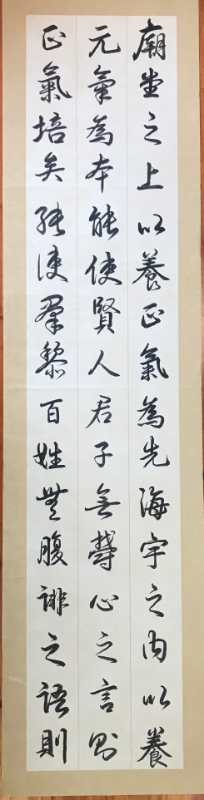 廟堂之上以養正氣為先海宇之内以養
元氣為本能使賢人君子無鬱心之言則
正氣培矣能使羣黎百姓無腹誹之語則